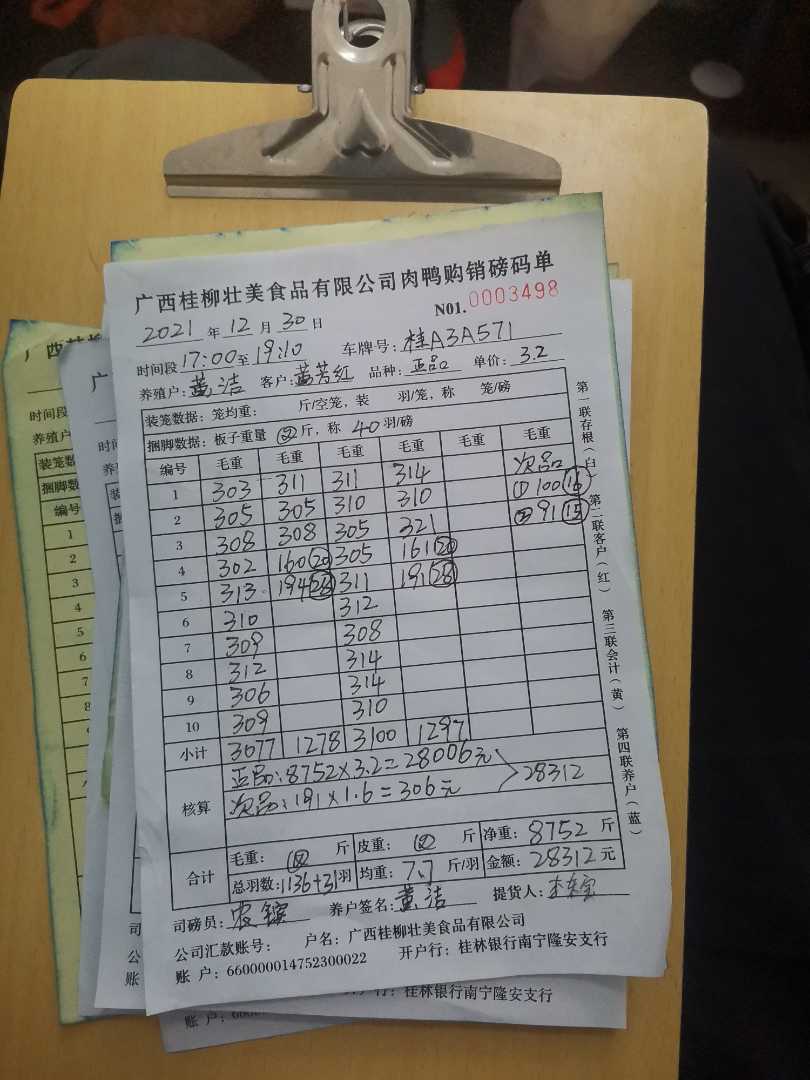 广西桂柳壮美食品有限公司肉鸭购销磅码单
2021 年 12 月 30 日 N01. 0003498
时间段 17:00 至 19:10 车牌号: 桂A3A571
养殖户: 黄洁 客户: 黄芳红 品种: 正品 单价: 3.2
装笼数据: 笼均重: 斤/空笼, 装 羽/笼, 称 笼/磅
捆脚数据: 板子重量 斤, 称 40 羽/磅
编号 毛重 毛重 毛重 毛重 毛重 毛重
次品
1 303 311 311 314 ① 100 16
2 305 305 310 310 ② 91 15
3 308 308 305 321
4 302 160 20 305 161 20
5 313 194 28 311 191 28
6 310 312
7 309 308
8 312 314
9 306 314
10 309 310
小计 3077 1278 3100 1297
核算 正品: 8752×3.2=28006元
次品: 191×1.6=306元 28312
合计 毛重: 斤 皮重: 斤 净重: 8752 斤
总羽数: 1136+31 羽 均重: 7.7 斤/羽 金额: 28312 元
司磅员: 养户签名: 黄洁 提货人:
公司汇款账号: 户名: 广西桂柳壮美食品有限公司
账 户: 660000014752300022 开户行: 桂林银行南宁隆安支行
第一联存根(白) 第二联客户(红) 第三联会计(黄) 第四联养户(蓝)
时间段
养殖户
装笼数
捆脚数据
编号
1
2
3
4
5
6
7
8
账 户: 开户行: 桂林银行南宁隆安支行